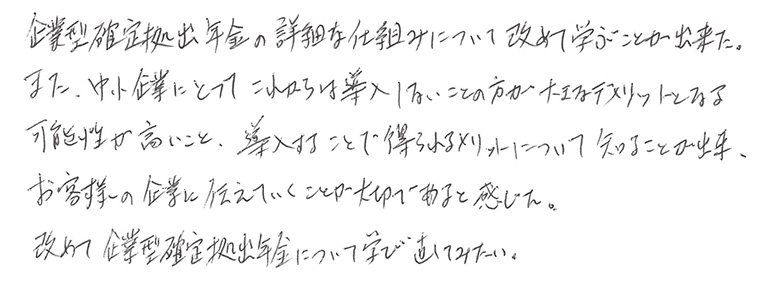 企業型確定拠出年金の詳細な仕組みについて改めて学ぶことが出来た。
また、中小企業にとってこれからは導入しないことの方が大きなデメリットとなる
可能性が高いこと、導入することで得られるメリットについて知ることが出来、
お客様の企業に伝えていくことが大切であると感じた。
改めて企業型確定拠出年金について学び直してみたい。